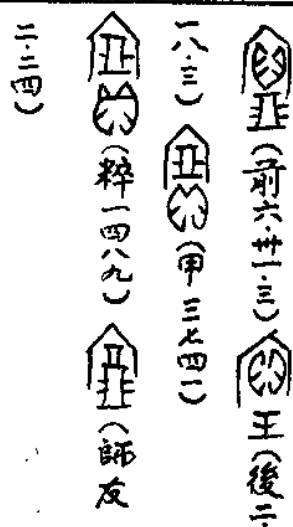 （前六·卅一·三）王（後二·
一八·三）（甲三七四一）
（粹一四八九）（師友
二·二四）